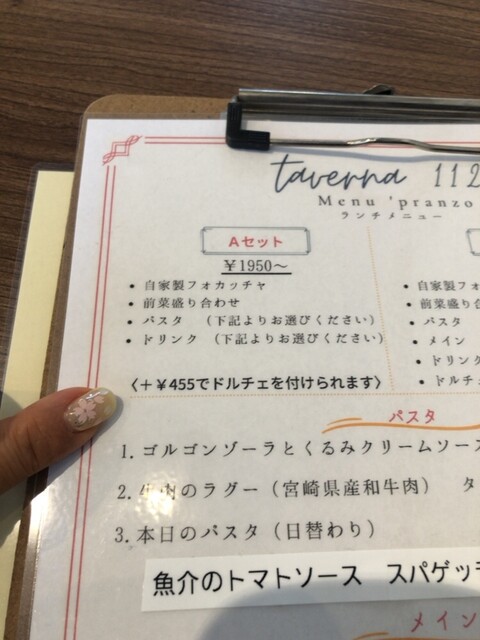 taverna 112
Menu 'pranzo
ランチメニュー
Aセット
¥1950～
• 自家製フォカッチャ
• 前菜盛り合わせ
• パスタ （下記よりお選びください）
• ドリンク （下記よりお選びください）
〈＋¥455でドルチェを付けられます〉
• 自家製フォ
• 前菜盛り合
• パスタ
• メイン
• ドリンク
• ドルチ
パスタ
1. ゴルゴンゾーラとくるみクリームソース
2. 牛肉のラグー（宮崎県産和牛肉） タ
3. 本日のパスタ（日替わり）
魚介のトマトソース スパゲッテ
メイン